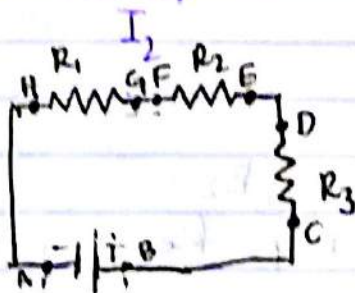 I₂
H R₁ G F R₂ E
D
R₃
C
A - + B